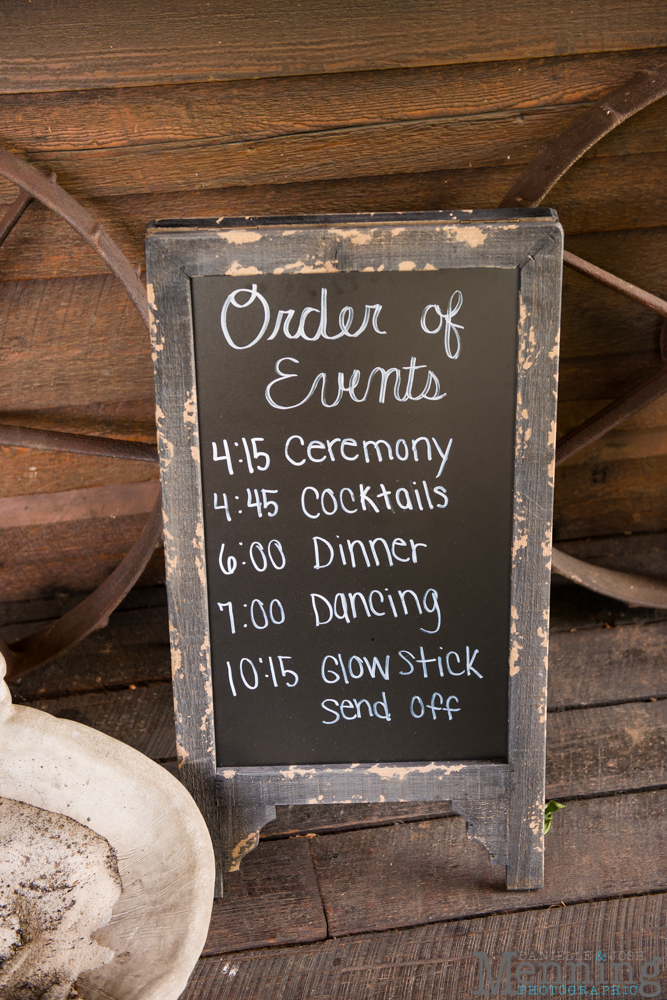 Order of
Events
4:15 Ceremony
4:45 Cocktails
6:00 Dinner
7:00 Dancing
10:15 Glow Stick
Send Off
DANIELLE & JOSH
Menning
PHOTOGRAPHIC